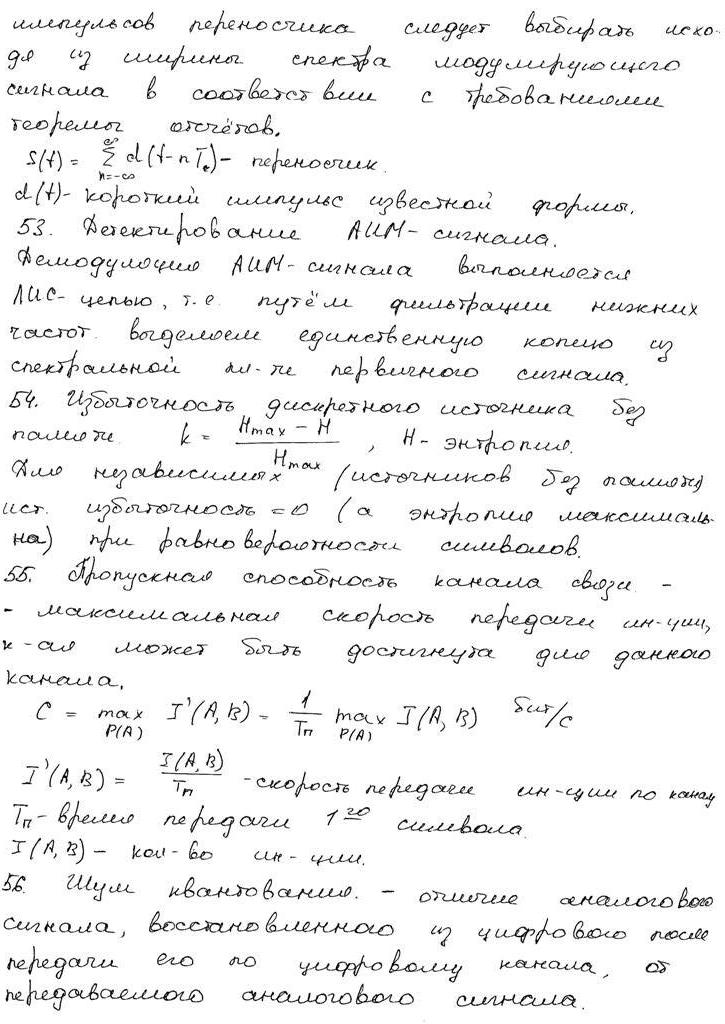 импульсов переносчика следует выбирать исхо-
дя из ширины спектра модулирующего
сигнала в соответствии с требованиями
теоремы отсчётов.
S(t) = ∑_{n=-∞}^{∞} d(t-nT₀) - переносчик.
d(t) - короткий импульс известной формы.
53. Детектирование АИМ-сигнала.
Демодуляция АИМ-сигнала выполняется
ЛИС-цепью, т.е. путём фильтрации нижних
частот выделяем единственную копию из
спектральной пл-ти первичного сигнала.
54. Избыточность дискретного источника без
памяти. k = (Hmax - H) / Hmax, H - энтропия.
Для независимых (источников без памяти)
ист. избыточность = 0 (а энтропия максималь-
на) при равновероятности символов.
55. Пропускная способность канала связи -
- максимальная скорость передачи ин-ции,
к-ая может быть достигнута для данного
канала.
C = max_{P(A)} I'(A,B) = 1/Tп max_{P(A)} I(A,B) бит/с
I'(A,B) = I(A,B)/Tп - скорость передачи ин-ции по каналу
Tп - время передачи 1го символа
I(A,B) - кол-во ин-ции.
56. Шум квантования. - отличие аналогового
сигнала, восстановленного из цифрового после
передачи его по цифровому канала, от
передаваемого аналогового сигнала.